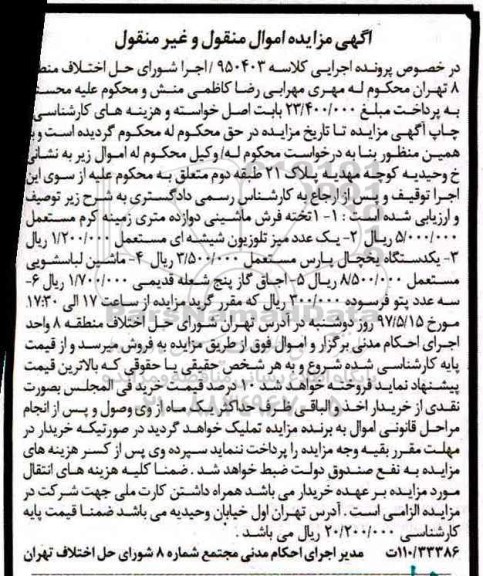 آگهی مزایده اموال منقول و غیر منقول
در خصوص پرونده اجرایی کلاسه ۹۵۰۴۰۳ /اجرا شورای حل اختلاف
۸ تهران محکوم له مهری مهرابی رضا کاظمی منش و محکوم علیه
به پرداخت مبلغ ۲۳/۴۰۰/۰۰۰ بابت اصل خواسته و هزینه های کارشناسی
چاپ آگهی مزایده تا تاریخ مزایده در حق محکوم له محکوم گردیده است و
همین منظور بنا به درخواست محکوم له/ وکیل محکوم له اموال زیر به نشانی
خ وحیدیه کوچه مهدیه پلاک ۲۱ طبقه دوم متعلق به محکوم علیه از سوی این
اجرا توقیف و پس از ارجاع به کارشناس رسمی دادگستری به شرح زیر توصیف
و ارزیابی شده است : ۱- ۱تخته فرش ماشینی دوازده متری زمینه کرم مستعمل
۵/۰۰۰/۰۰۰ ریال ۲- یک عدد میز تلوزیون شیشه ای مستعمل ۱/۲۰۰/۰۰۰ ریال
۳- یکدستگاه یخچال پارس مستعمل ۳/۵۰۰/۰۰۰ ریال ۴- ماشین لباسشویی
مستعمل ۸/۵۰۰/۰۰۰ ریال ۵- اجاق گاز پنج شعله قدیمی ۱/۷۰۰/۰۰۰ ریال ۶-
سه عدد پتو فرسوده ۳۰۰/۰۰۰ ریال که مقرر گردید مزایده از ساعت ۱۷ الی ۱۷:۳۰
مورخ ۹۷/۵/۱۵ روز دوشنبه در آدرس تهران شورای حل اختلاف منطقه ۸ واحد
اجرای احکام مدنی برگزار و اموال فوق از طریق مزایده به فروش میرسد و از قیمت
پایه کارشناسی شده شروع و به هر شخص حقیقی یا حقوقی که بالاترین قیمت
پیشنهاد نماید فروخته خواهد شد. ۱۰ درصد قیمت خرید فی المجلس بصورت
نقدی از خریدار اخذ و الباقی ظرف حداکثر یک ماه از وی وصول و پس از انجام
مراحل قانونی اموال به برنده مزایده تملیک خواهد گردید در صورتیکه خریدار در
مهلت مقرر بقیه وجه مزایده را پرداخت ننماید سپرده وی پس از کسر هزینه های
مزایده به نفع صندوق دولت ضبط خواهد شد . ضمنا کلیه هزینه های انتقال
مورد مزایده بر عهده خریدار می باشد همراه داشتن کارت ملی جهت شرکت در
مزایده الزامی است . آدرس تهران اول خیابان وحیدیه می باشد ضمنا قیمت پایه
کارشناسی ۲۰/۲۰۰/۰۰۰ ریال می باشد .
۱۱۰/۳۳۳۸۶ت مدیر اجرای احکام مدنی مجتمع شماره ۸ شورای حل اختلاف تهران
ParsNamadData